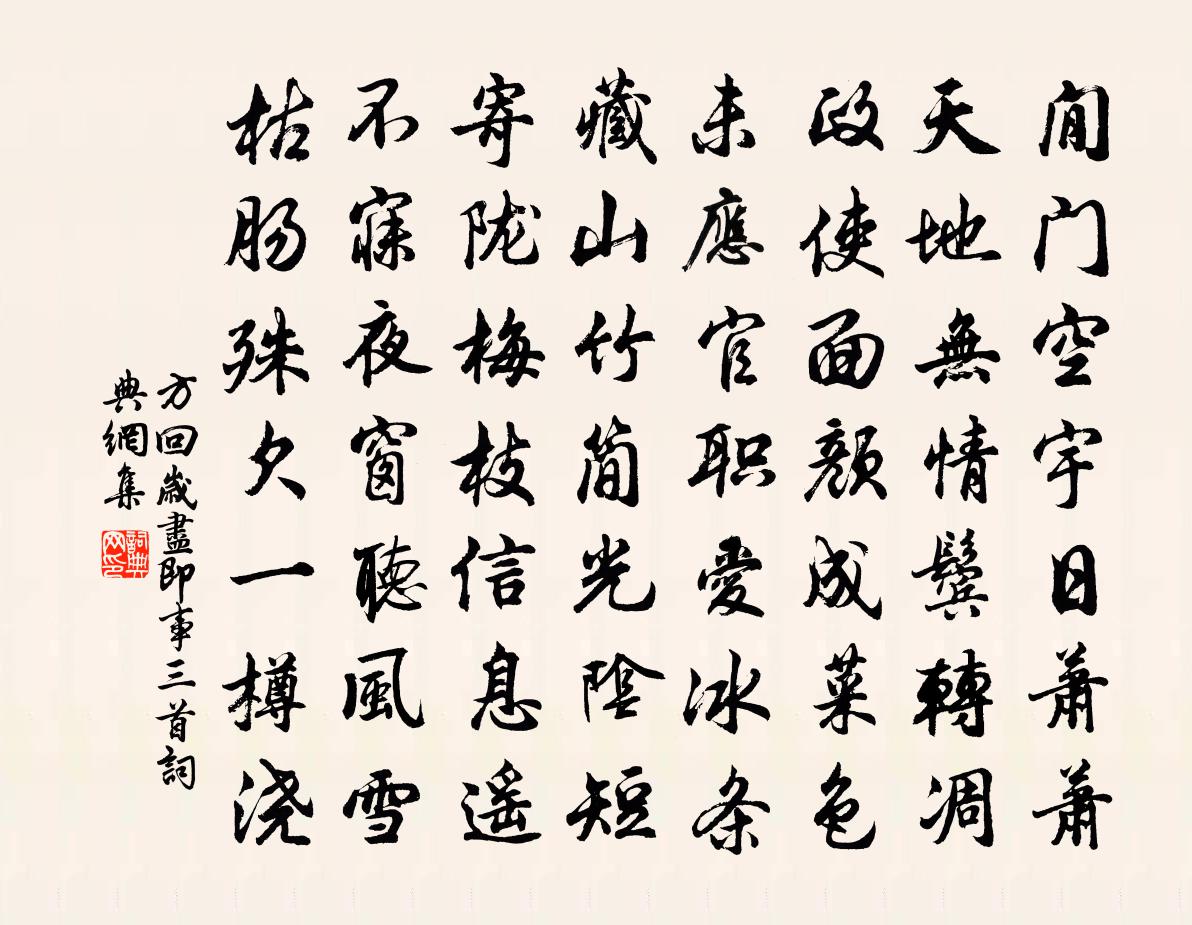 闲门空宇日萧萧
天地無情鬓轉凋
政使面颜成菜色
未應官职愛冰条
藏山竹简光陰短
寄陇梅枝信息遥
不寐夜窗聽風雪
枯肠殊欠一樽浇
方回歲盡即事三首詞
典網集
詞典
网印